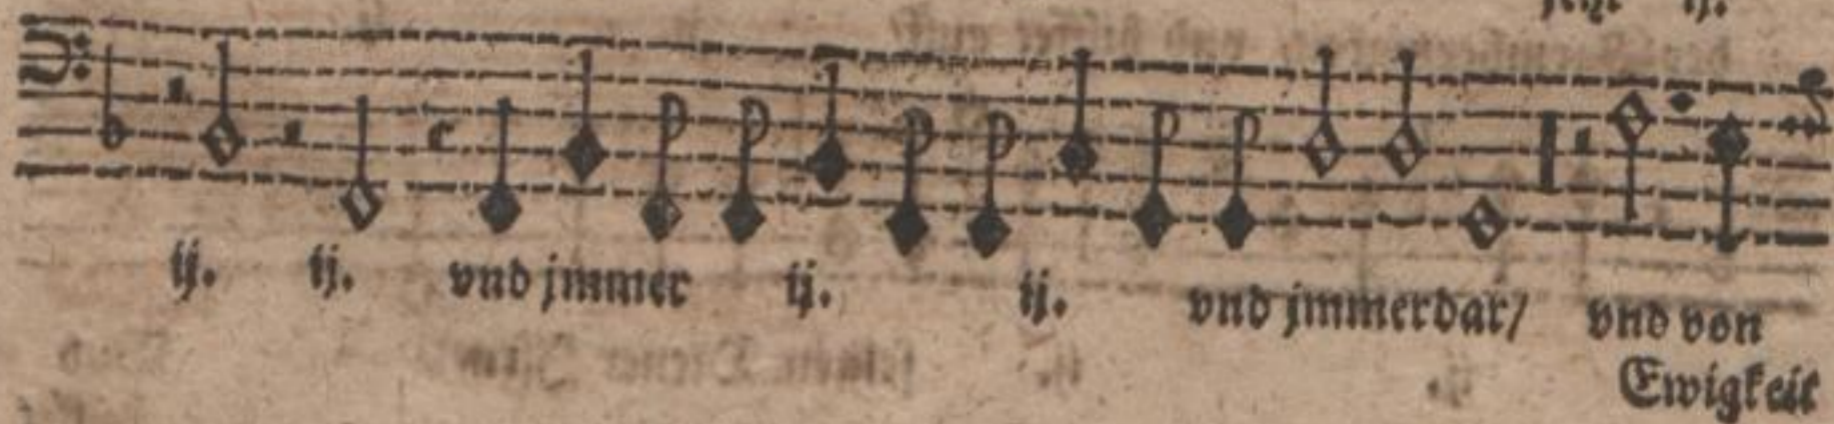 ij. ij. vnd jmmer ij. ij. vnd jmmerdar/ vnd von
Ewigkeit